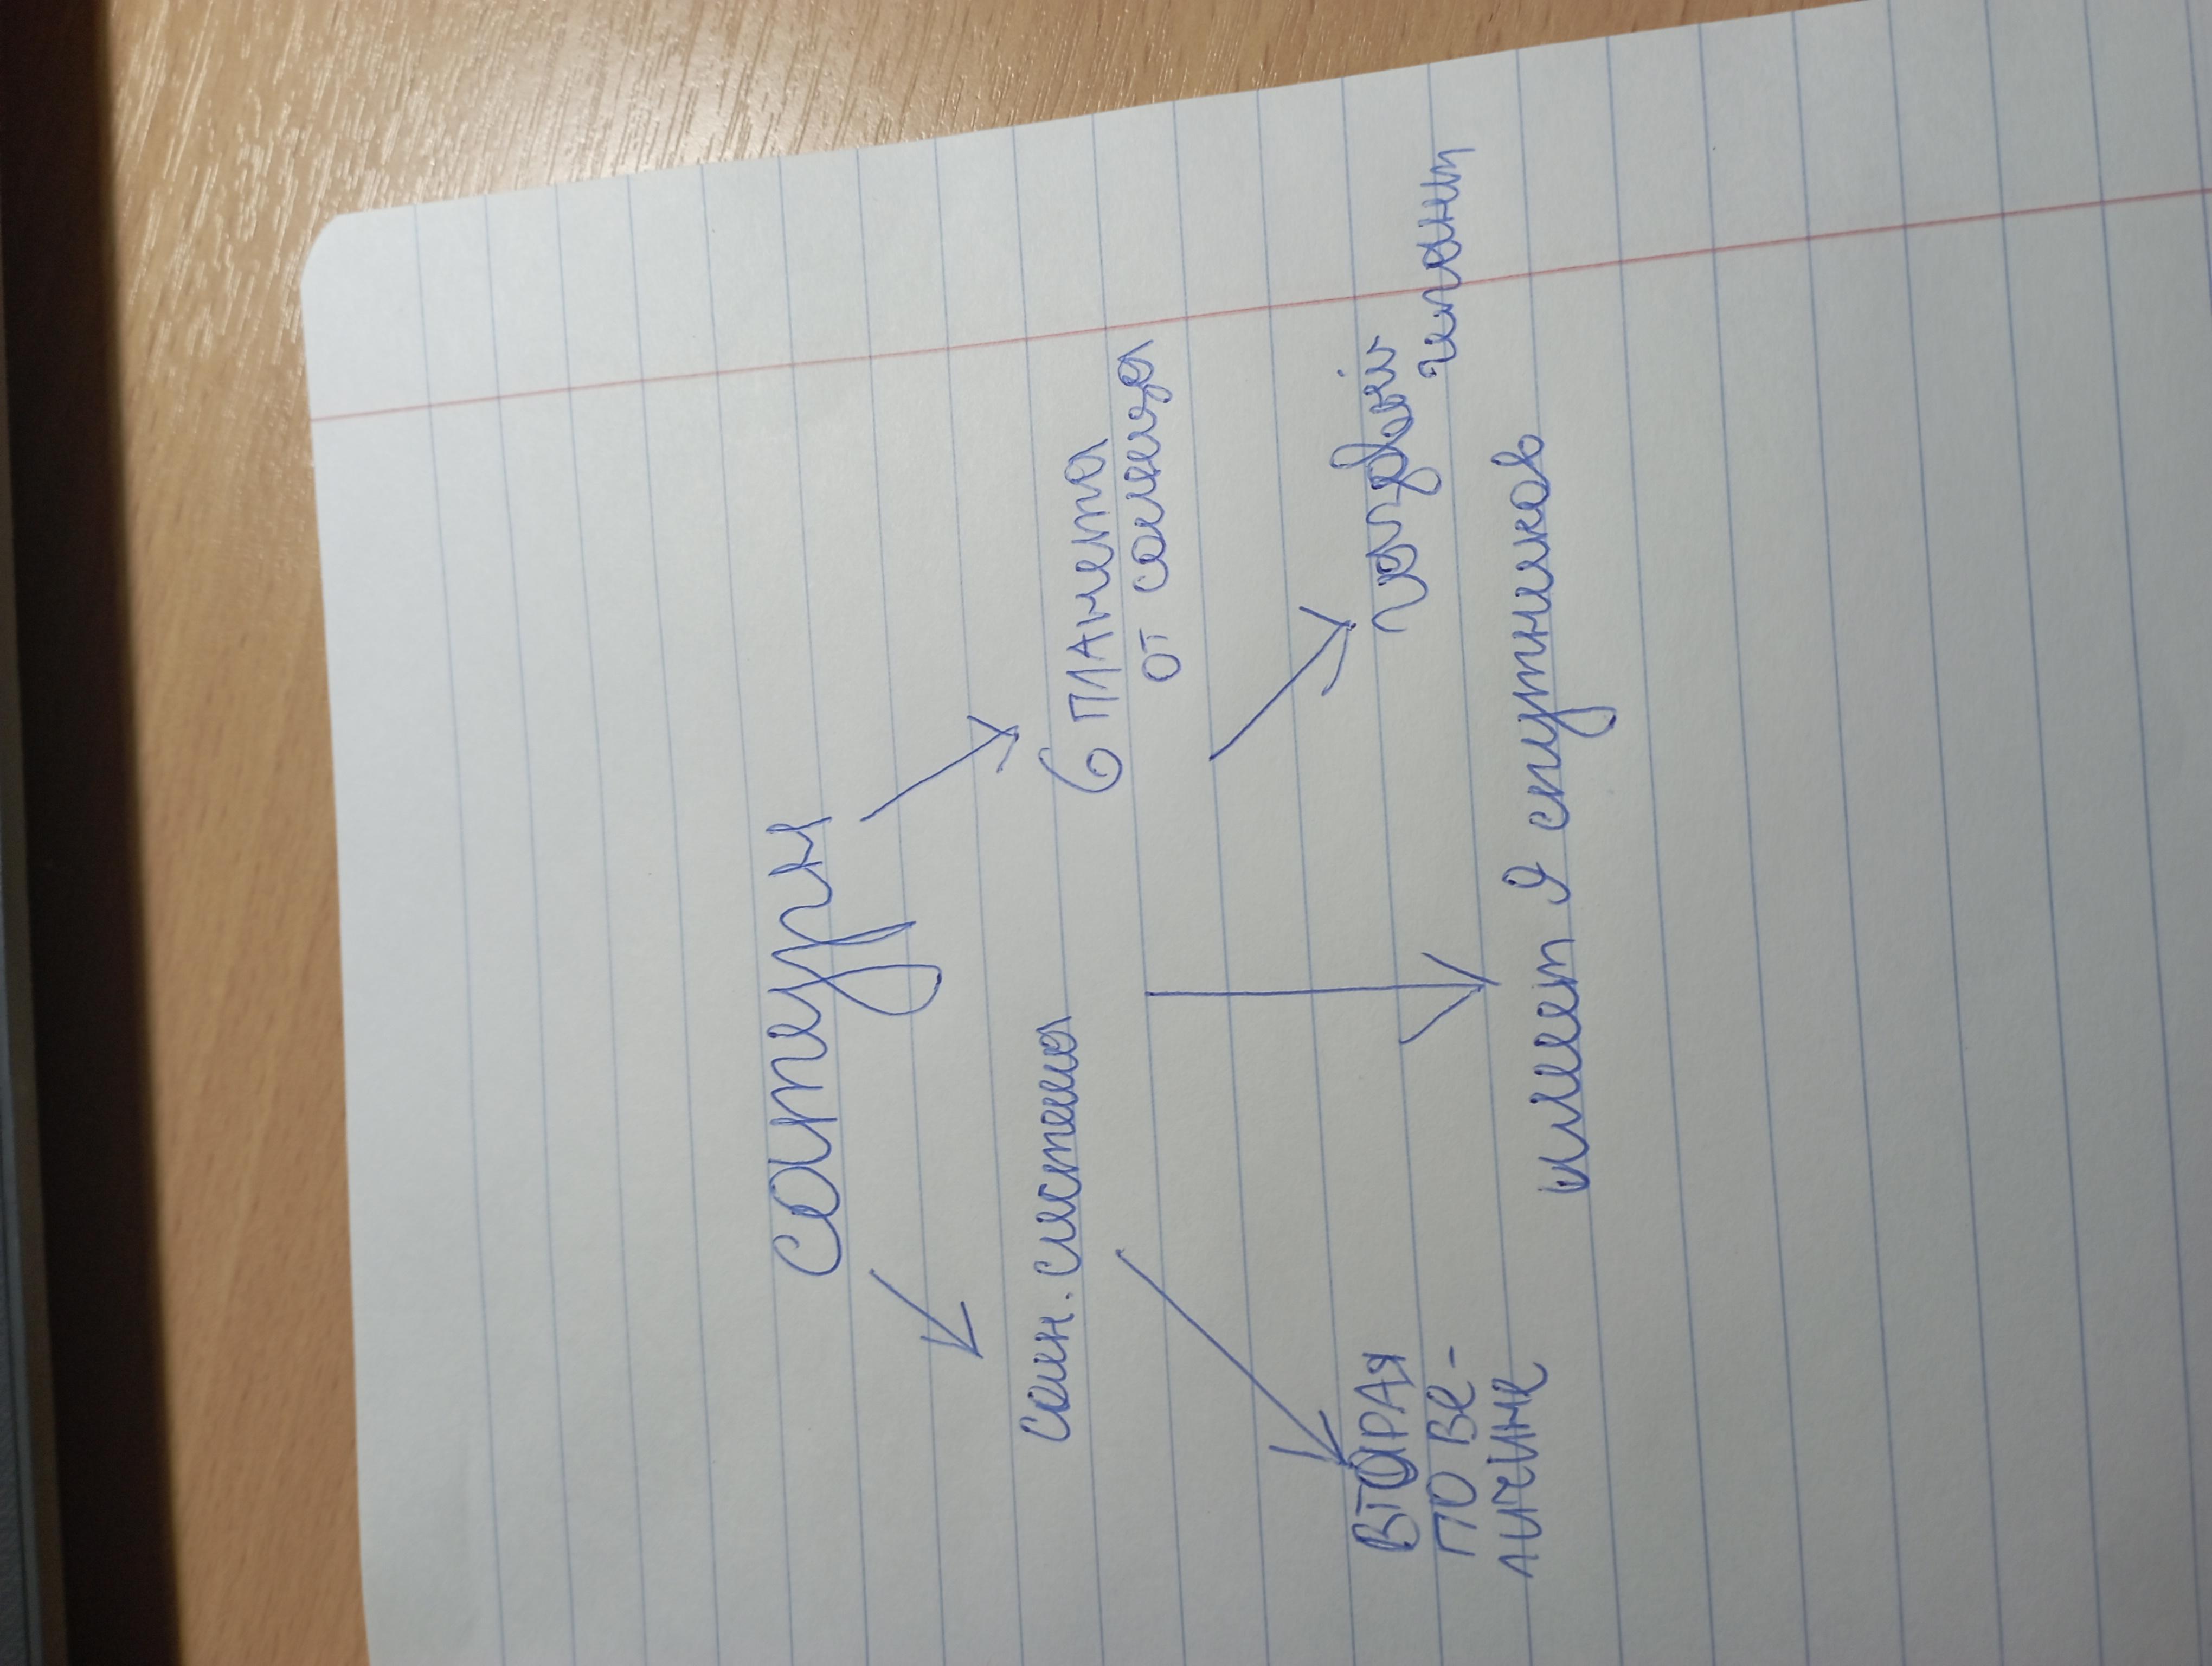 Сатурн
Солн. система
6 планета
от солнца
ВТОРАЯ
ПО ВЕ-
личине
имеет 9 спутников
газовый
гигант